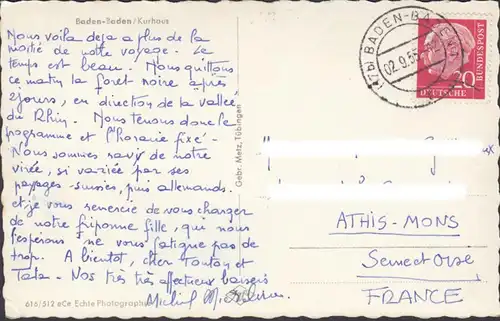 Baden-Baden/Kurhaus
Nous voila deja a plus de la
moitié de notre voyage. Le
temps est beau. Nous quittons
ce matin la foret noire après
2 jours, en direction de la vallée
du Rhin. Nous tenons donc le
programme et l'horaire fixé.
Nous sommes ravis de notre
virée, si variée par ses
paysages suisses, puis allemands.
et je vous remercie de vous charger
de notre friponne fille, qui nous
l'espérons ne vous fatigue pas de
trop. A bientot, cher Tonton et
Tata. Nos très très affectueux baisers
Michel M.
616/512 eCe Echte Photographie
Gebr. Metz, Tübingen
(17b) BADEN-BADEN
02.9.55
20
DEUTSCHE
BUNDESPOST
ATHIS-MONS
Seine et Oise
FRANCE